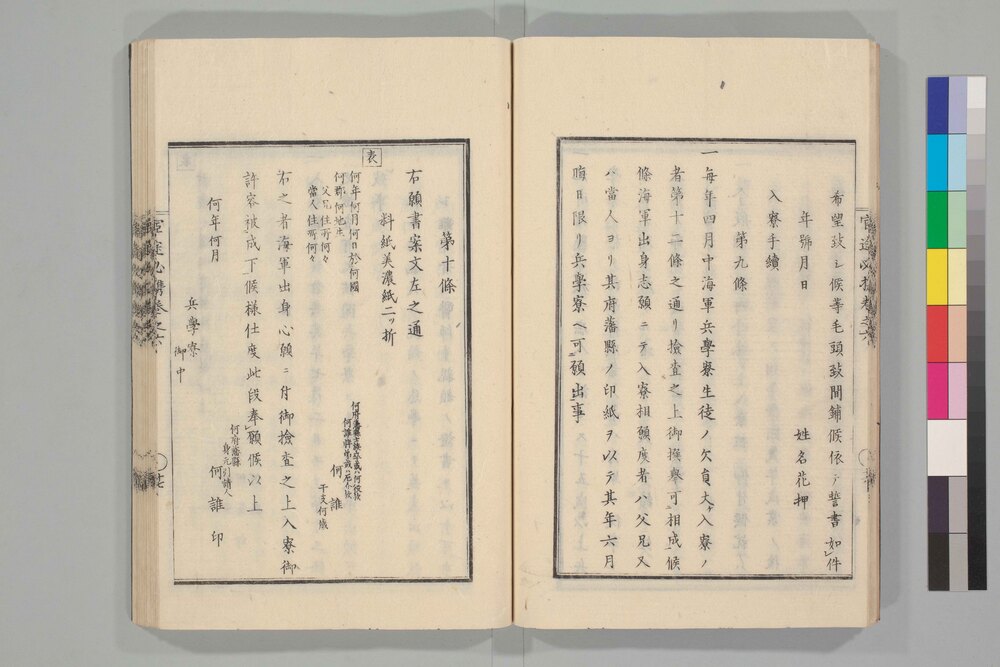 希望致シ候等毛頭致間鋪候依テ誓書如件
年號月日
姓名花押
入寮手續
第九條
一毎年四月中海軍兵學寮生徒ノ欠員丈ケ入寮ノ
者第十二條之通リ撿査之上御撰擧可相成候
條海軍出身志願ニテ入寮相願度者ハ父兄又
ハ當人ヨリ其府藩縣ノ印紙ヲ以テ其年六月
晦日限リ兵學寮ヘ可願出事
第十條
右願書案文左之通
料紙美濃紙二ツ折
表
何年何月何日於何國
何郡何地生
父兄住所何々
當人住所何々
何誰
干支何歳
右之者海軍出身心願ニ付御撿査之上入寮御
許容被成下候様仕度此段奉願候以上
何府藩縣
身元引請人
何年何月
何誰印
兵學寮
御中